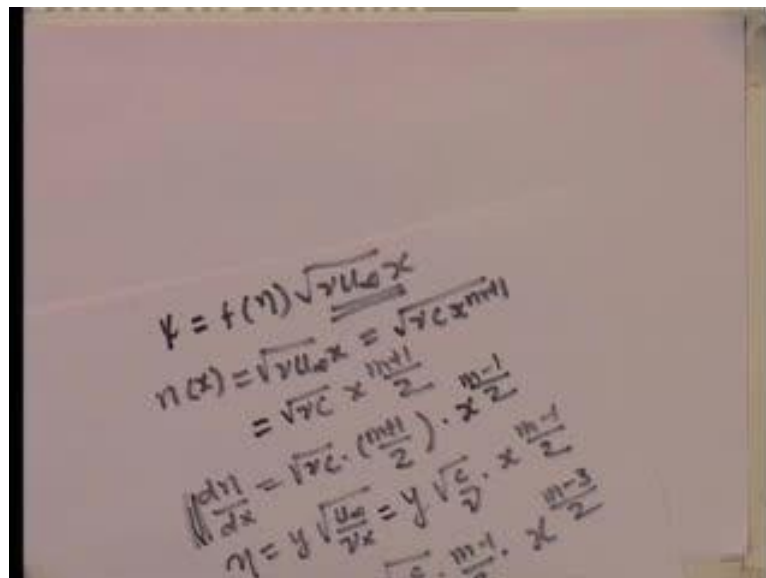 ψ = f(η) √(νu∞x)
n(x) = √(νu∞x) = √(νcx^(m+1))
= √(νc) x^((m+1)/2)
dn/dx = √(νc) · ((m+1)/2) · x^((m-1)/2)
η = y √(u∞/(νx)) = y √(c/ν) · x^((m-1)/2)
· (m-1)/2 · x^((m-3)/2)